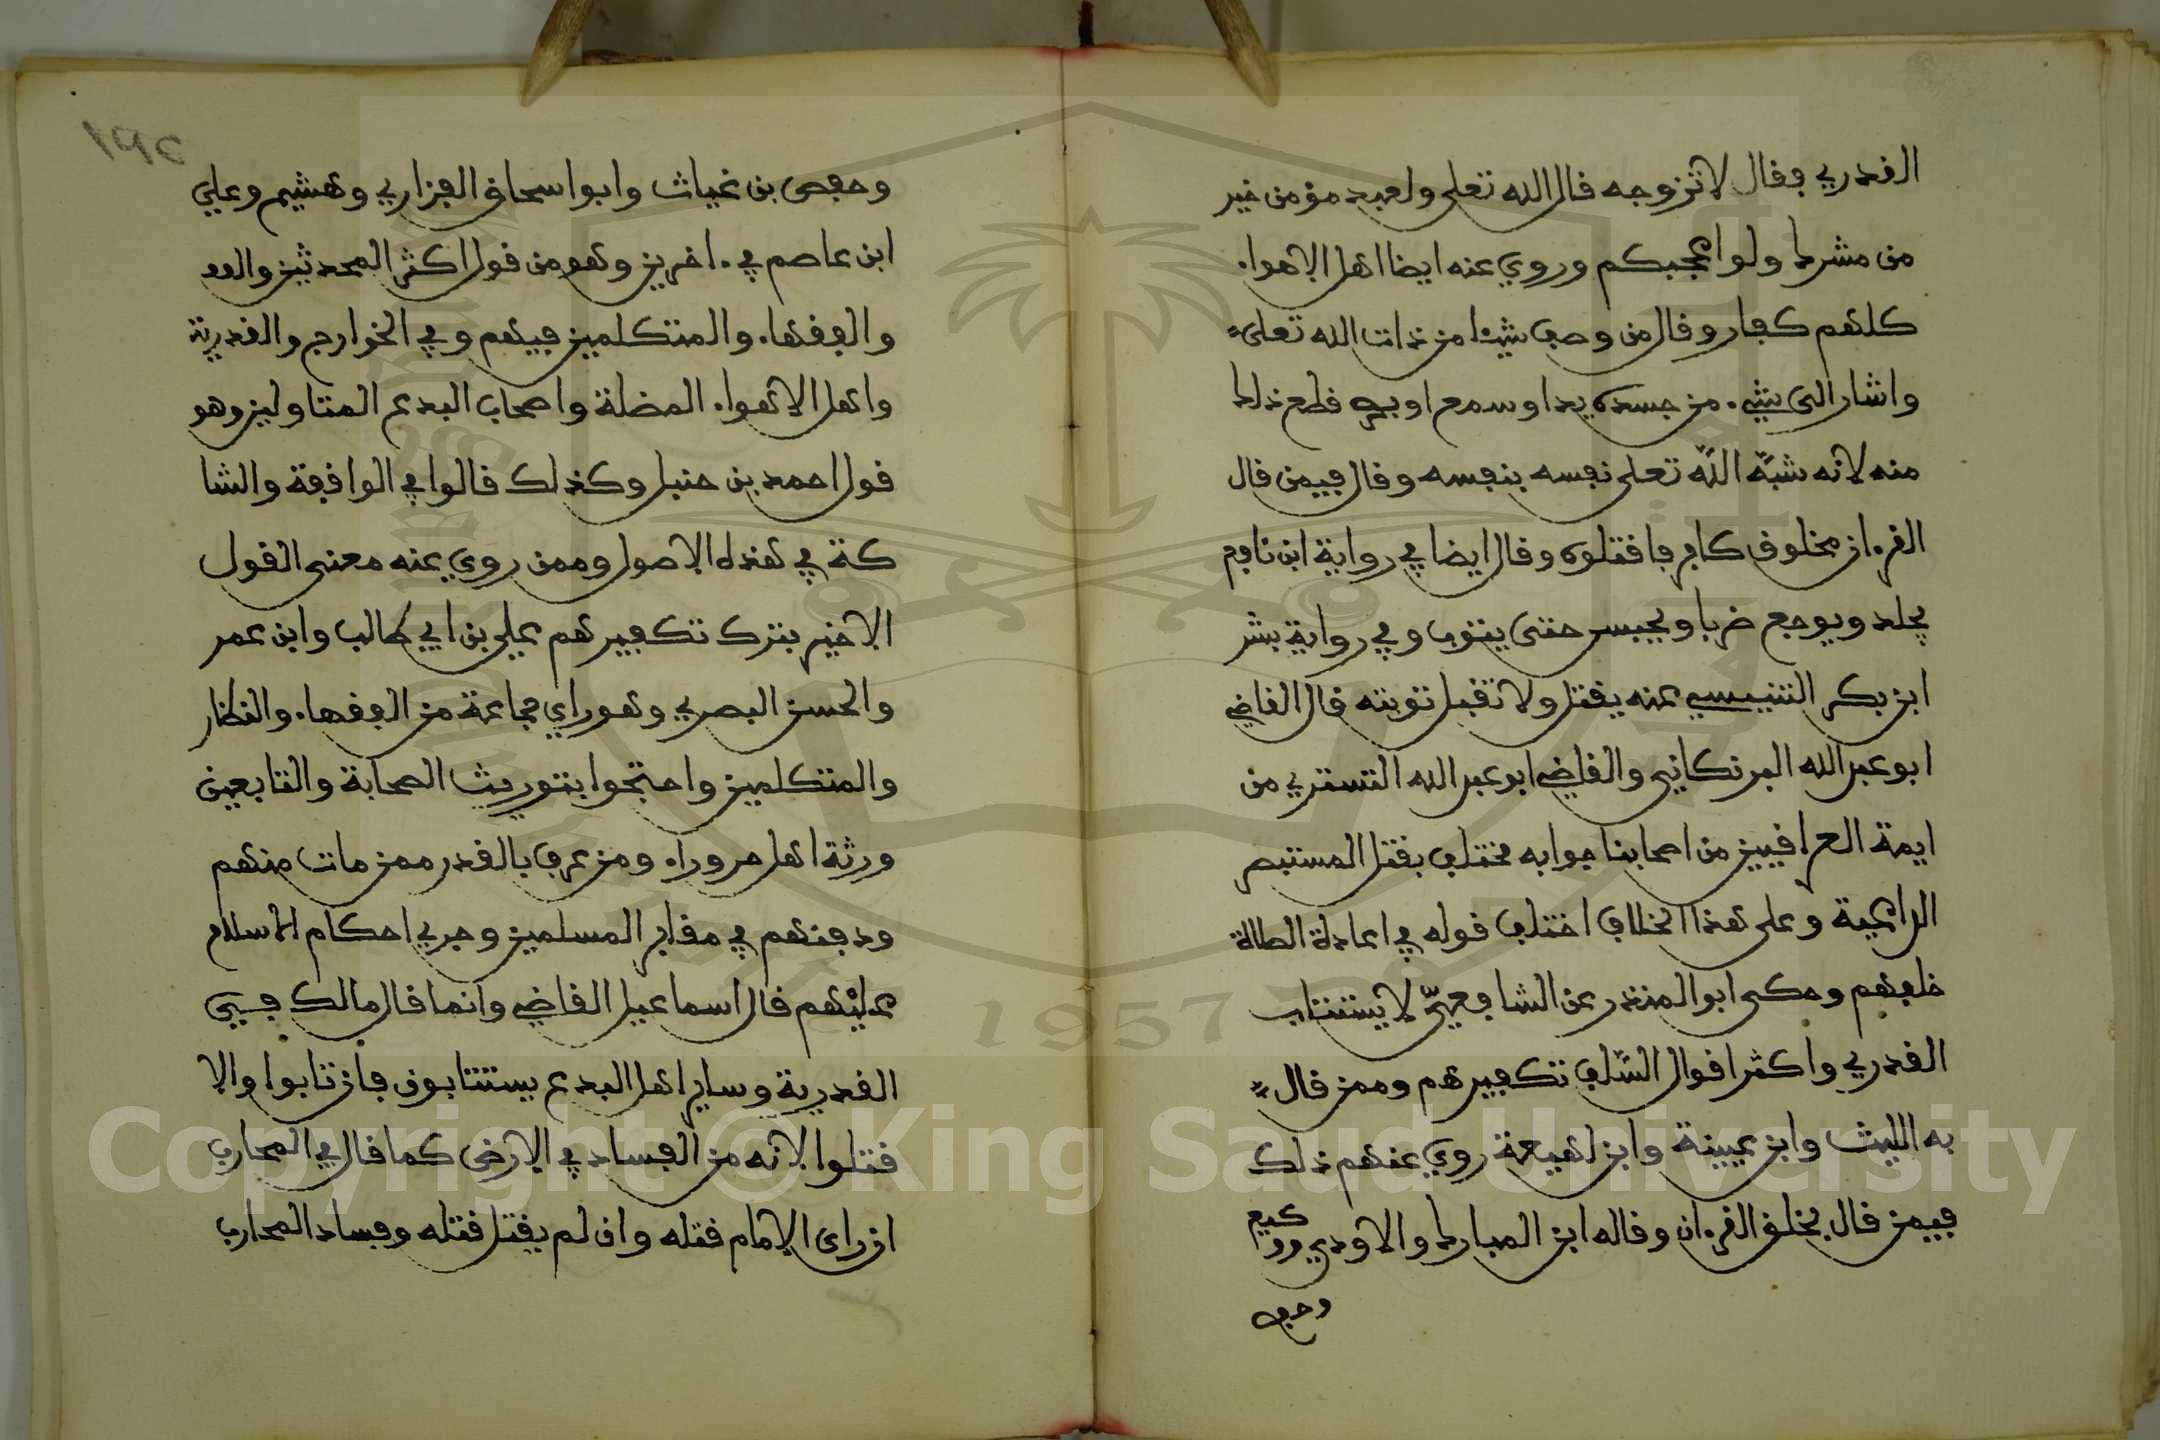 القدري فقال لا تزوجه قال الله تعلى ولعبد مؤمن خير
من مشرك ولو اعجبكم وروي عنه ايضا اهل الاهواء
كلهم كفار وقال من وصف شيئا من ذات الله تعلى
واشار الى شيء من جسده يد او سمع او بصر قطع ذلك
منه لانه شبّه اللّه تعلى نفسه بنفسه وقال فيمن قال
القرءان مخلوق كافر فاقتلوه وقال ايضا في رواية ابن نافع
يجلد ويوجع ضربا ويحبس حتى يتوب وفي رواية بشر
ابن بكر التنيسي عنه يقتل ولا تقبل توبته قال القاضي
ابو عبد الله البرنكاني والقاضي ابو عبد الله التستري من
ايمة العراقيين من اصحابنا جوابه مختلف بقتل المستبصر
الداعية وعلى هذا الخلاف اختلف قوله في اعادة الصلاة
خلفهم وحكى ابو المنذر عن الشافعيّ لا يستتاب
القدري واكثر اقوال السّلف تكفيرهم وممن قال
به الليث وابن عيينة وابن لهيعة روي عنهم ذلك
فيمن قال بخلق القرءان وقاله ابن المبارك والاودي ووكيع
وحفص
١٩٤
وحفص بن غياث وابو اسحاق الفزاري وهشيم وعلي
ابن عاصم في ءاخرين وهو من قول اكثر المحدثين والدو
والفقهاء والمتكلمين فيهم وفي الخوارج والقدرية
واهل الاهواء المضلة واصحاب البدع المتاولين وهو
قول احمد بن حنبل وكذلك قالوا في الواقفة والشا
كة في هذه الاصول وممن روي عنه معنى القول
الاخير بترك تكفيرهم علي بن ابي طالب وابن عمر
والحسن البصري وهو راي جماعة من الفقهاء والنظار
والمتكلمين واحتجوا بتوريث الصحابة والتابعين
ورثة اهل حروراء ومن عرف بالقدر ممن مات منهم
ودفنهم في مقابر المسلمين وجري احكام الاسلام
عليْهم قال اسماعيل القاضي وانما قال مالك في
القدرية وساير اهل البدع يستتابون فان تابوا والا
قتلوا لانه من الفساد في الارض كما قال في المحارب
ان راى الامام قتله وان لم يقتل قتله وفساد المحارب